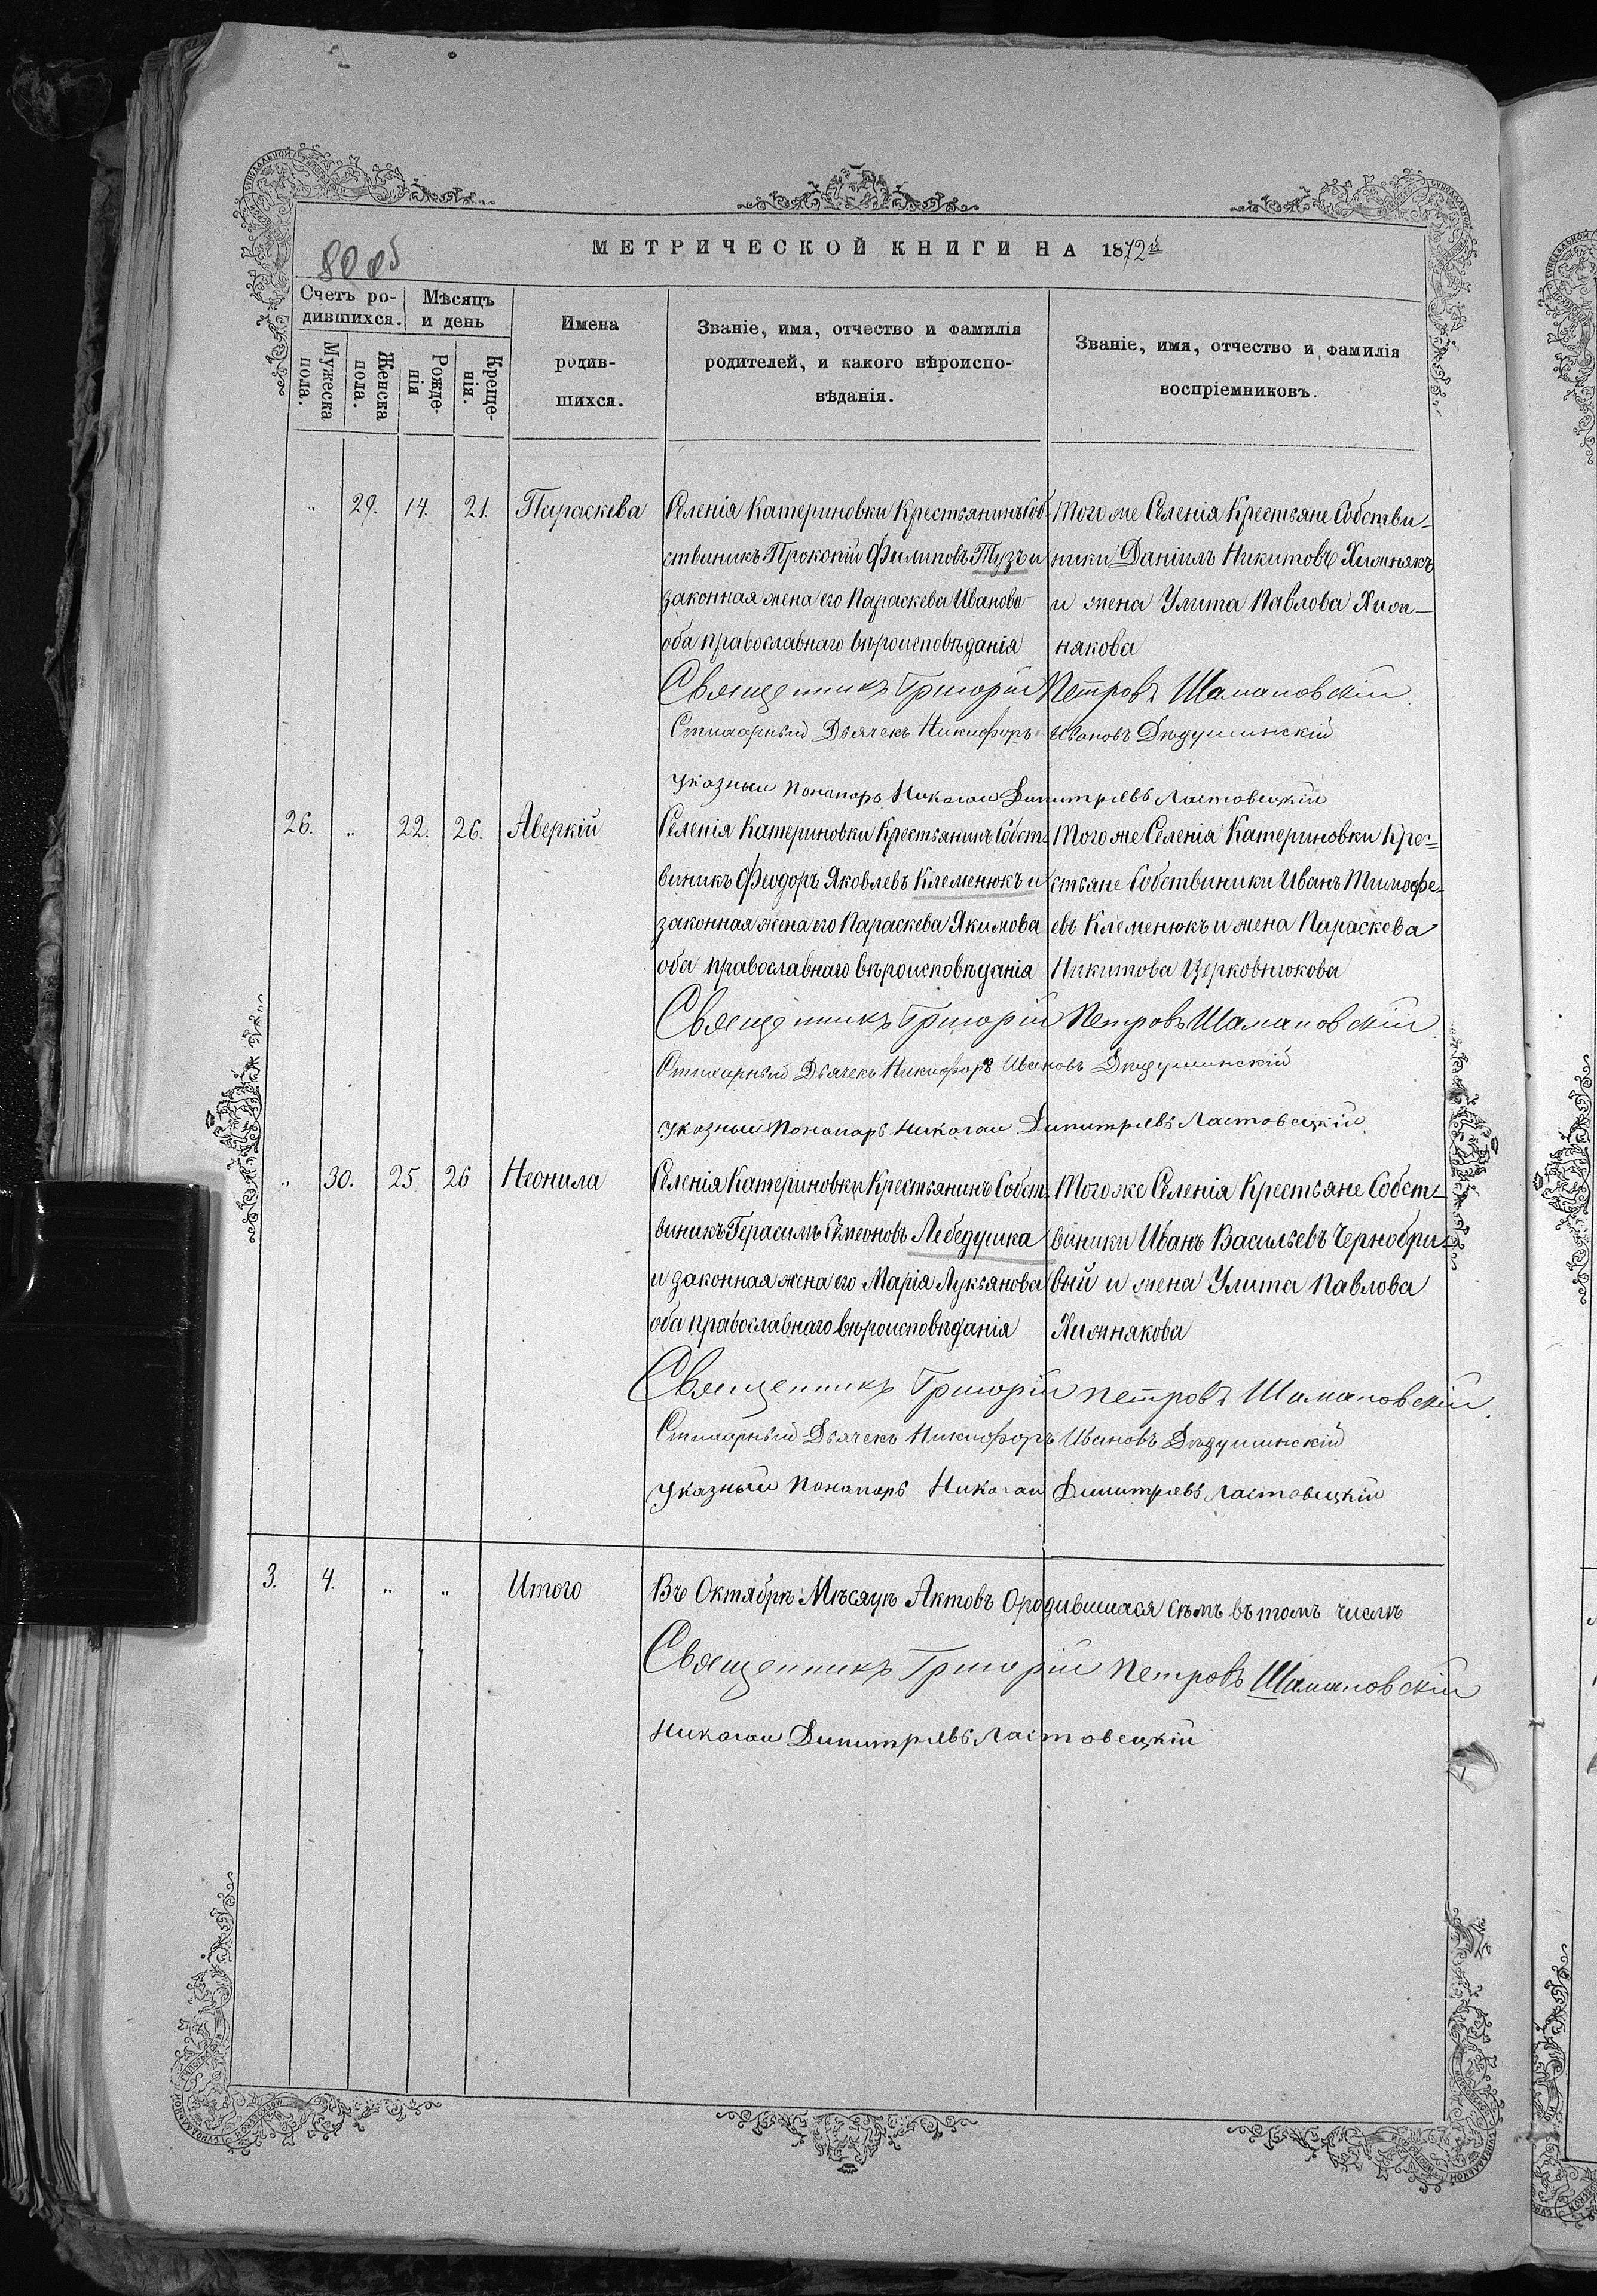 80 об
МЕТРИЧЕСКОЙ КНИГИ НА 1872й
Счетъ ро-
дившихся.
Мѣсяцъ
и день
Мужеска
пола.
Женска
пола.
Рожде-
нія
Креще-
нія.
Имена
родив-
шихся.
Званіе, имя, отчество и фамилія
родителей, и какого вѣроиспо-
вѣданія.
Званіе, имя, отчество и фамилія
воспріемниковъ.
„ 29. 14. 21. Параскева
Селенія Катериновки Крестьянинъ Соб-
ствиникъ Прокопій Филиповъ Тузъ и
законная жена его Параскева Иванова
оба православнаго вѣроисповѣданія
Того же Селенія Крестьяне Собстви-
ники Даніилъ Никитовъ Хижнякъ
и жена Улита Павлова Хиж-
някова
Священникъ Григорій Петровъ Шамановскій
Стихарный Дьячекъ Никифоръ Ивановъ Дѣдушинскій
Указный Пономарь Николай Димитріевъ Ластовецкій
26. „ 22. 26. Аверкій
Селенія Катериновки Крестьянинъ Собст-
виникъ Феодоръ Яковлевъ Клеменюкъ и
законная жена его Параскева Якимова
оба православнаго вѣроисповѣданія
Того же Селенія Катериновки Кре-
стьяне Собствиники Иванъ Тимофе-
евъ Клеменюкъ и жена Параскева
Никитова Церковнюкова
Священникъ Григорій Петровъ Шамановскій
Стихарный Дьячекъ Никифоръ Ивановъ Дѣдушинскій
Указный Пономарь Николай Димитріевъ Ластовецкій
„ 30. 25 26 Неонила
Селенія Катериновки Крестьянинъ Собст-
виникъ Герасимъ Симеоновъ Лебедушка
и законная жена его Марія Лукьянова
оба православнаго вѣроисповѣданія
Того же Селенія Крестьяне Собст-
виники Иванъ Васильевъ Чернобри-
вый и жена Улита Павлова
Хижнякова
Священникъ Григорій Петровъ Шамановскій
Стихарный Дьячекъ Никифоръ Ивановъ Дѣдушинскій
Указный Пономарь Николай Димитріевъ Ластовецкій
3. 4. „ „ Итого
Въ Октябрѣ Мѣсяцѣ Актовъ О родившихся сѣмъ въ томъ числѣ
Священникъ Григорій Петровъ Шамановскій
Николай Димитріевъ Ластовецкій